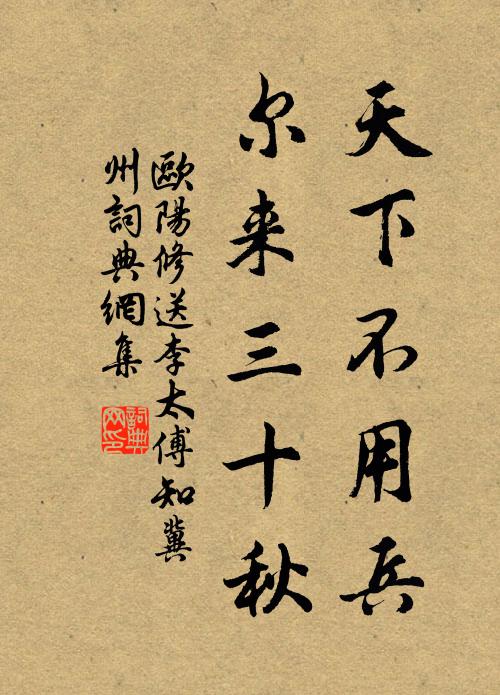 天下不用兵
尔来三十秋
歐陽修送李太傅知冀
州詞典網集
詞典
网印